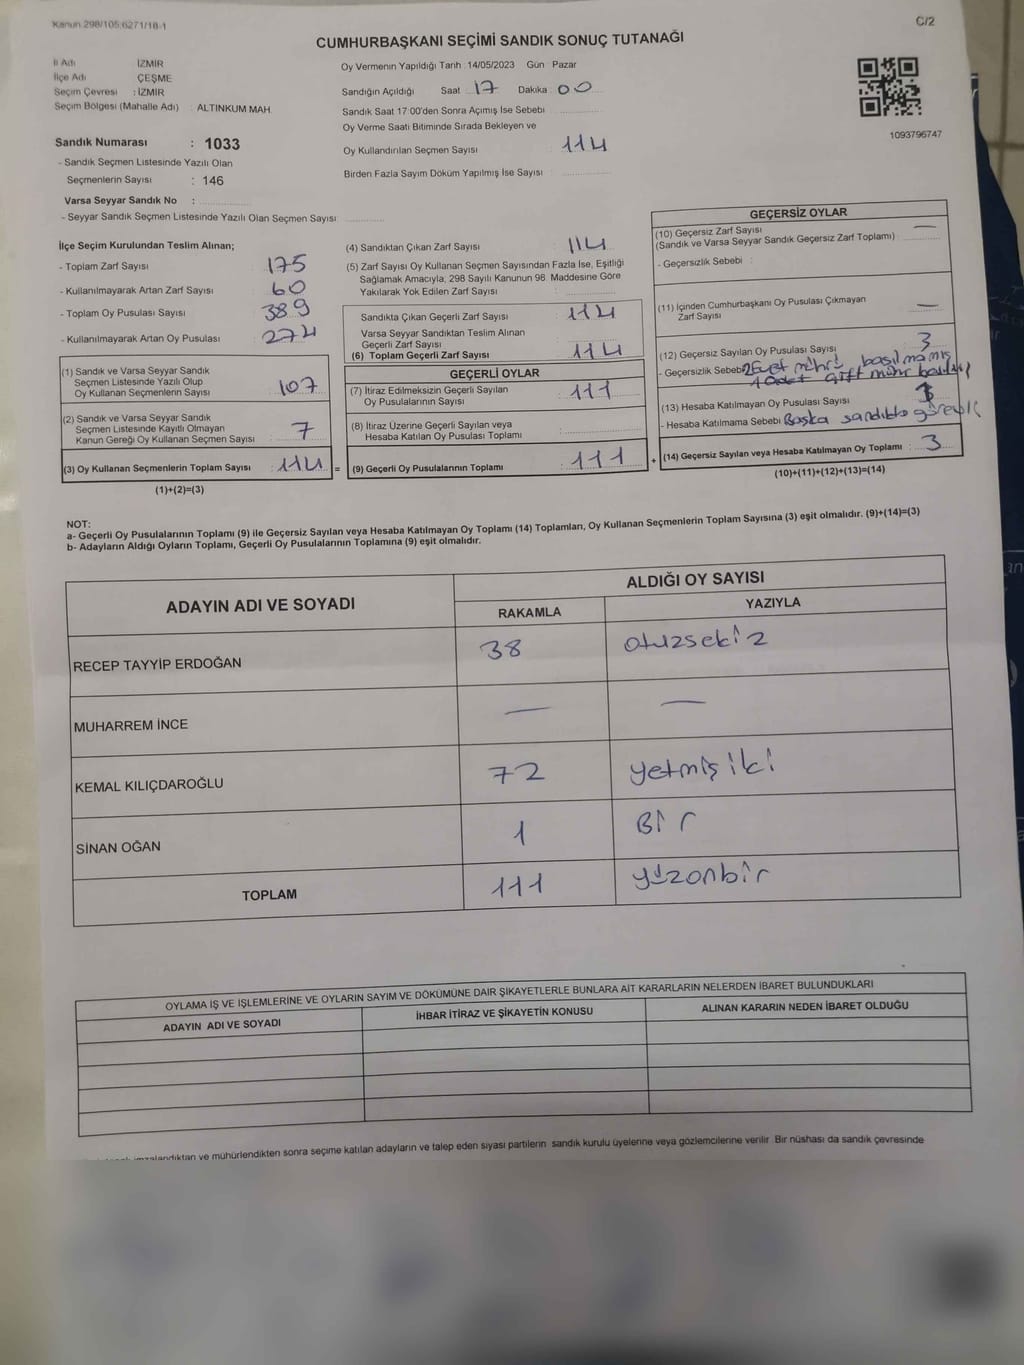 Kanun 298/105,6271/18-1
C/2
CUMHURBAŞKANI SEÇİMİ SANDIK SONUÇ TUTANAĞI
İl Adı İZMİR
İlçe Adı ÇEŞME
Seçim Çevresi : İZMİR
Seçim Bölgesi (Mahalle Adı) : ALTINKUM MAH.
Sandık Numarası : 1033
- Sandık Seçmen Listesinde Yazılı Olan
Seçmenlerin Sayısı : 146
Varsa Seyyar Sandık No :
- Seyyar Sandık Seçmen Listesinde Yazılı Olan Seçmen Sayısı
Oy Vermenin Yapıldığı Tarih :14/05/2023 Gün Pazar
Sandığın Açıldığı Saat 17 Dakika 00
Sandık Saat 17:00'den Sonra Açımış İse Sebebi
Oy Verme Saati Bitiminde Sırada Bekleyen ve
Oy Kullandırılan Seçmen Sayısı : 114
Birden Fazla Sayım Döküm Yapılmış İse Sayısı :
1093796747
İlçe Seçim Kurulundan Teslim Alınan;
- Toplam Zarf Sayısı : 175
- Kullanılmayarak Artan Zarf Sayısı : 60
- Toplam Oy Pusulası Sayısı : 389
- Kullanılmayarak Artan Oy Pusulası : 274
(1) Sandık ve Varsa Seyyar Sandık
Seçmen Listesinde Yazılı Olup
Oy Kullanan Seçmenlerin Sayısı : 107
(2) Sandık ve Varsa Seyyar Sandık
Seçmen Listesinde Kayıtlı Olmayan
Kanun Gereği Oy Kullanan Seçmen Sayısı : 7
(3) Oy Kullanan Seçmenlerin Toplam Sayısı : 114 =
(1)+(2)=(3)
(4) Sandıktan Çıkan Zarf Sayısı : 114
(5) Zarf Sayısı Oy Kullanan Seçmen Sayısından Fazla İse, Eşitliği
Sağlamak Amacıyla; 298 Sayılı Kanunun 98. Maddesine Göre
Yakılarak Yok Edilen Zarf Sayısı :
Sandıkta Çıkan Geçerli Zarf Sayısı : 114
Varsa Seyyar Sandıktan Teslim Alınan
Geçerli Zarf Sayısı :
(6) Toplam Geçerli Zarf Sayısı : 114
GEÇERLİ OYLAR
(7) İtiraz Edilmeksizin Geçerli Sayılan
Oy Pusulalarının Sayısı : 111
(8) İtiraz Üzerine Geçerli Sayılan veya
Hesaba Katılan Oy Pusulası Toplamı :
(9) Geçerli Oy Pusulalarının Toplamı : 111 +
GEÇERSİZ OYLAR
(10) Geçersiz Zarf Sayısı —
(Sandık ve Varsa Seyyar Sandık Geçersiz Zarf Toplamı) :
- Geçersizlik Sebebi :
(11) İçinden Cumhurbaşkanı Oy Pusulası Çıkmayan
Zarf Sayısı : —
(12) Geçersiz Sayılan Oy Pusulası Sayısı : 3
- Geçersizlik Sebebi 2 Evet mührü basılmamış
1 Adet çift mühr
(13) Hesaba Katılmayan Oy Pusulası Sayısı :
- Hesaba Katılmama Sebebi Başka sandıkta görevli
(14) Geçersiz Sayılan veya Hesaba Katılmayan Oy Toplamı : 3
(10)+(11)+(12)+(13)=(14)
NOT:
a- Geçerli Oy Pusulalarının Toplamı (9) ile Geçersiz Sayılan veya Hesaba Katılmayan Oy Toplamı (14) Toplamları, Oy Kullanan Seçmenlerin Toplam Sayısına (3) eşit olmalıdır. (9)+(14)=(3)
b- Adayların Aldığı Oyların Toplamı, Geçerli Oy Pusulalarının Toplamına (9) eşit olmalıdır.
ADAYIN ADI VE SOYADI ALDIĞI OY SAYISI
RAKAMLA YAZIYLA
RECEP TAYYİP ERDOĞAN 38 otuzsekiz
MUHARREM İNCE — —
KEMAL KILIÇDAROĞLU 72 yetmişiki
SİNAN OĞAN 1 Bir
TOPLAM 111 yüzonbir
OYLAMA İŞ VE İŞLEMLERİNE VE OYLARIN SAYIM VE DÖKÜMÜNE DAİR ŞİKAYETLERLE BUNLARA AİT KARARLARIN NELERDEN İBARET BULUNDUKLARI
ADAYIN ADI VE SOYADI İHBAR İTİRAZ VE ŞİKAYETİN KONUSU ALINAN KARARIN NEDEN İBARET OLDUĞU
imzalandıktan ve mühürlendikten sonra seçime katılan adayların ve talep eden siyasi partilerin sandık kurulu üyelerine veya gözlemcilerine verilir. Bir nüshası da sandık çevresinde